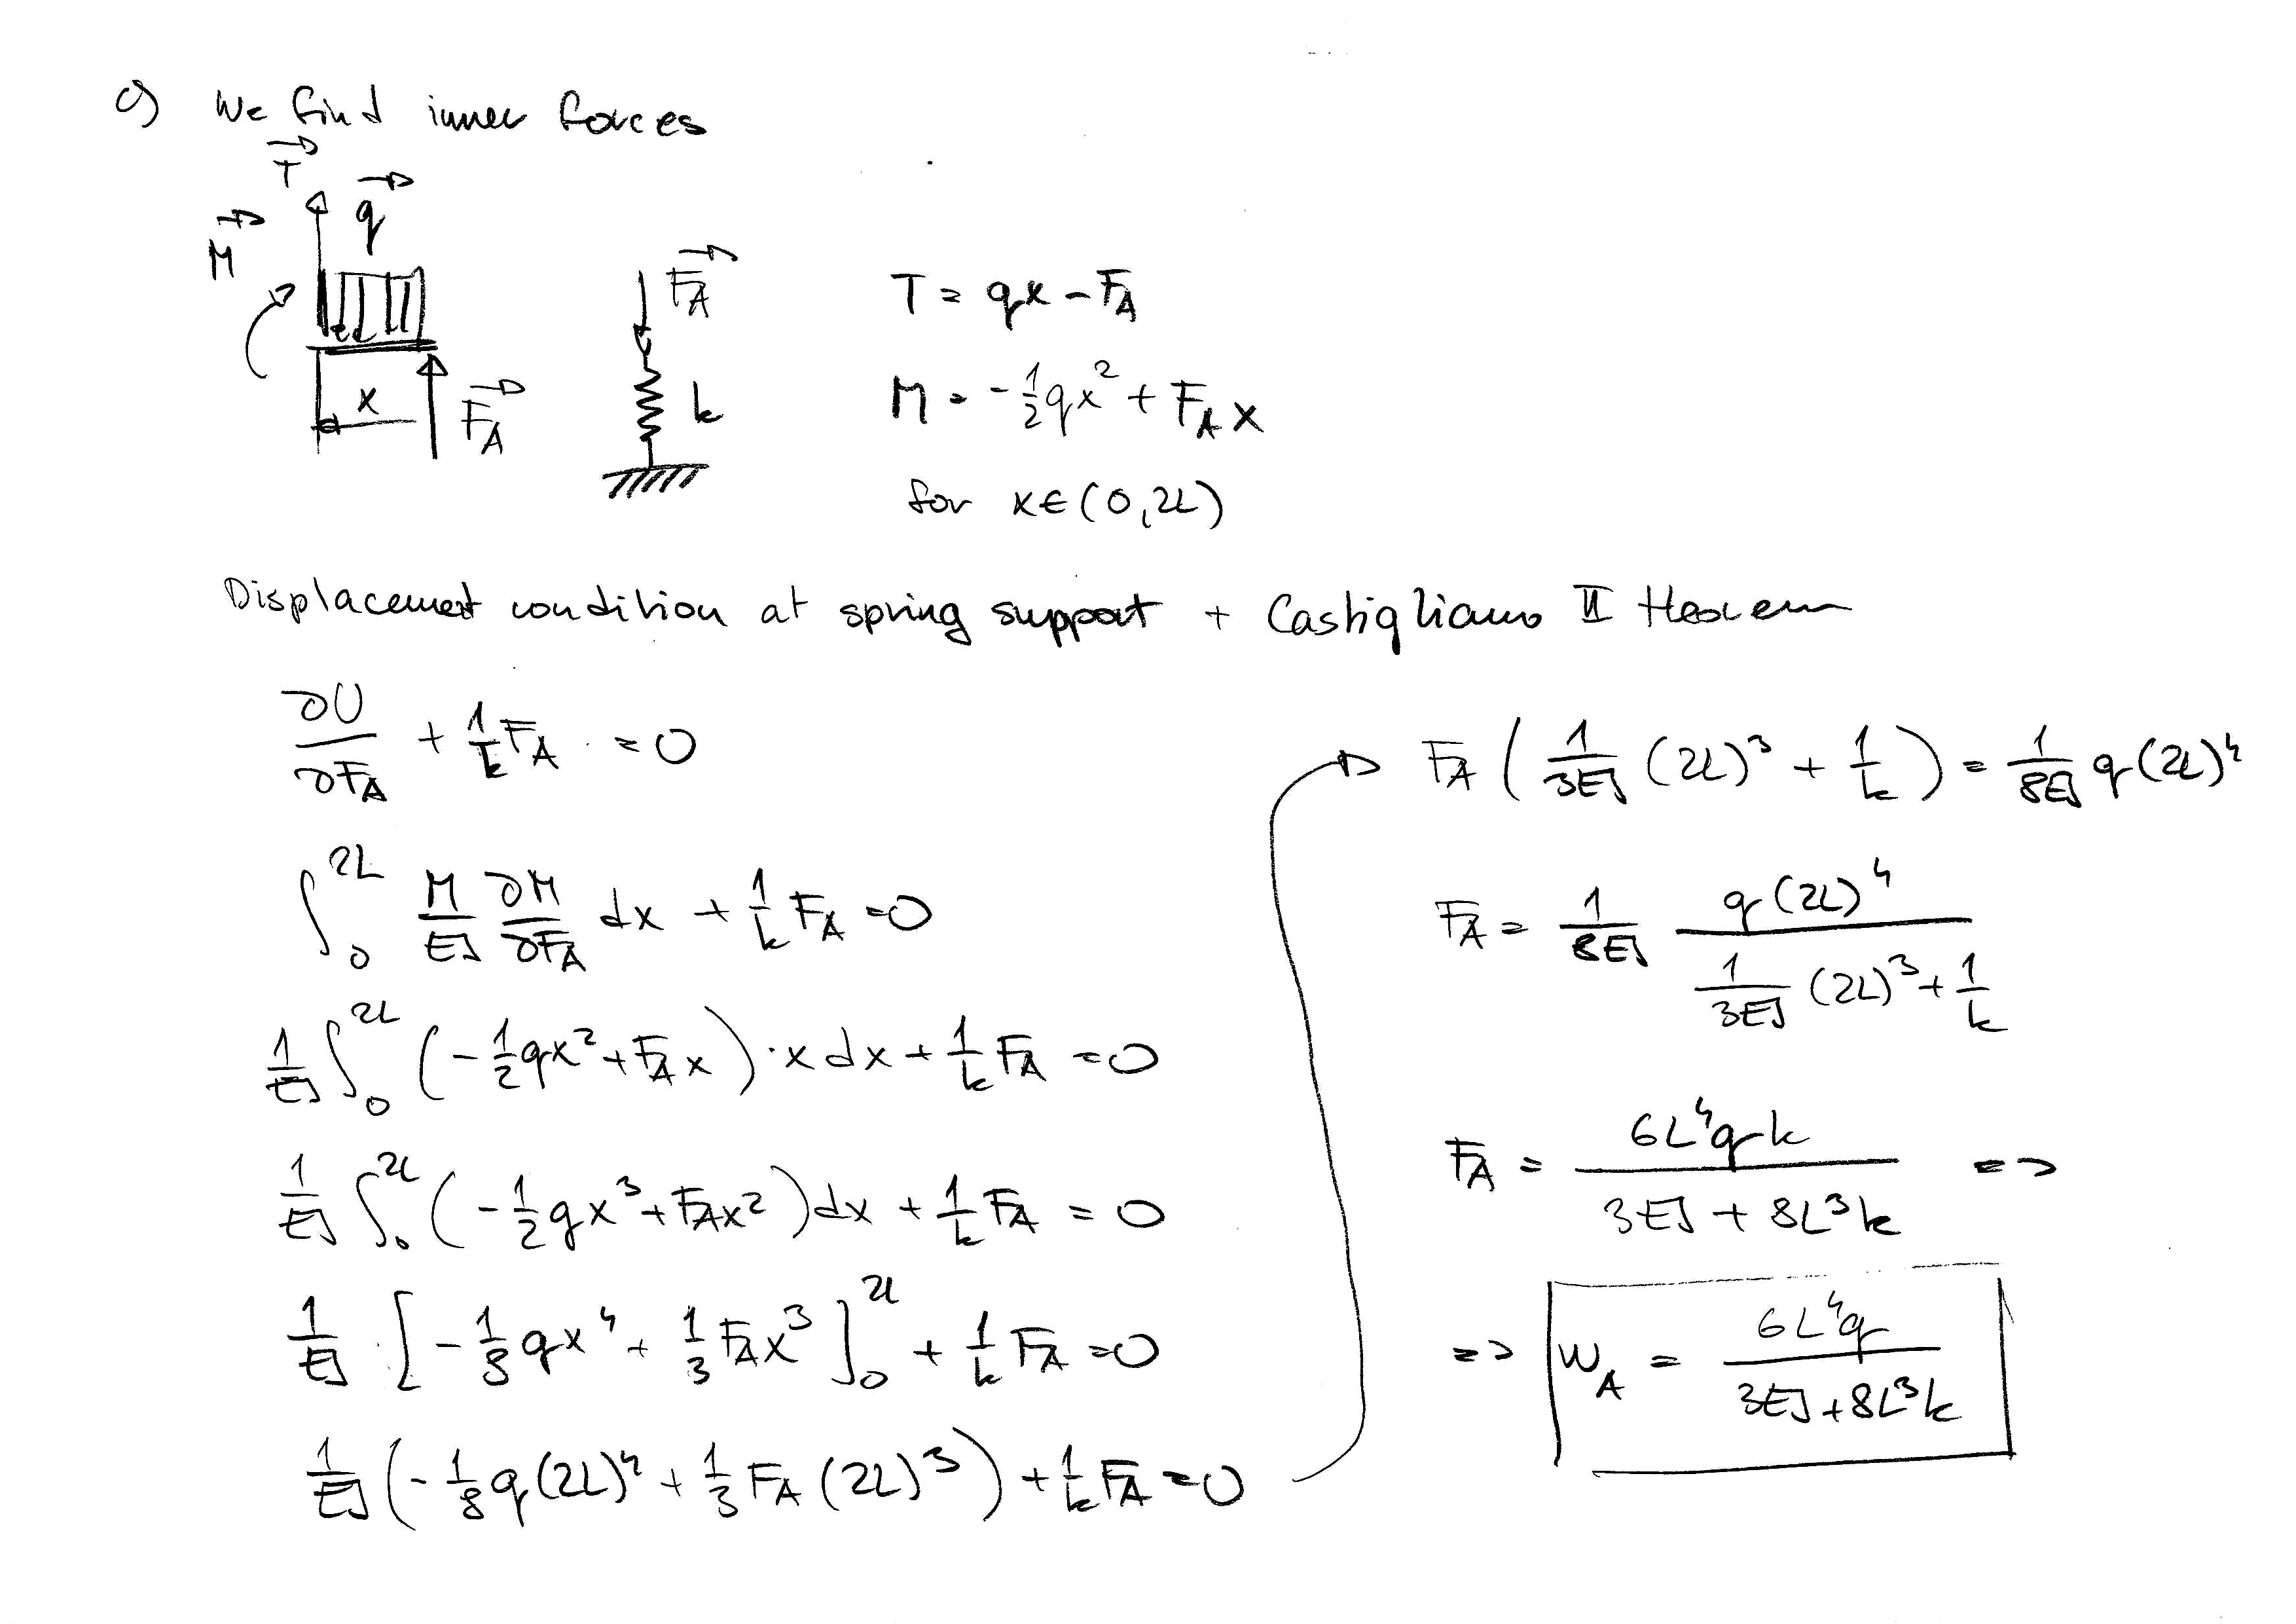 c) We find inner forces
T
q
M
F_A
T = qx - F_A
k
M = -1/2 qx² + F_A x
x
F_A
for x∈(0,2L)
Displacement condition at spring support + Castigliano II theorem
∂U/∂F_A + 1/k F_A = 0
∫₀^2L M/EJ ∂M/∂F_A dx + 1/k F_A = 0
1/EJ ∫₀^2L (-1/2 qx² + F_A x)·x dx + 1/k F_A = 0
1/EJ ∫₀^2L (-1/2 qx³ + F_A x²)dx + 1/k F_A = 0
1/EJ · [-1/8 qx⁴ + 1/3 F_A x³]₀^2L + 1/k F_A = 0
1/EJ (-1/8 q(2L)⁴ + 1/3 F_A (2L)³) + 1/k F_A = 0
F_A (1/3EJ (2L)³ + 1/k) = 1/8EJ q(2L)⁴
F_A = 1/8EJ q(2L)⁴ / (1/3EJ (2L)³ + 1/k)
F_A = 6L⁴qk / (3EJ + 8L³k) =>
=> w_A = 6L⁴q / (3EJ + 8L³k)